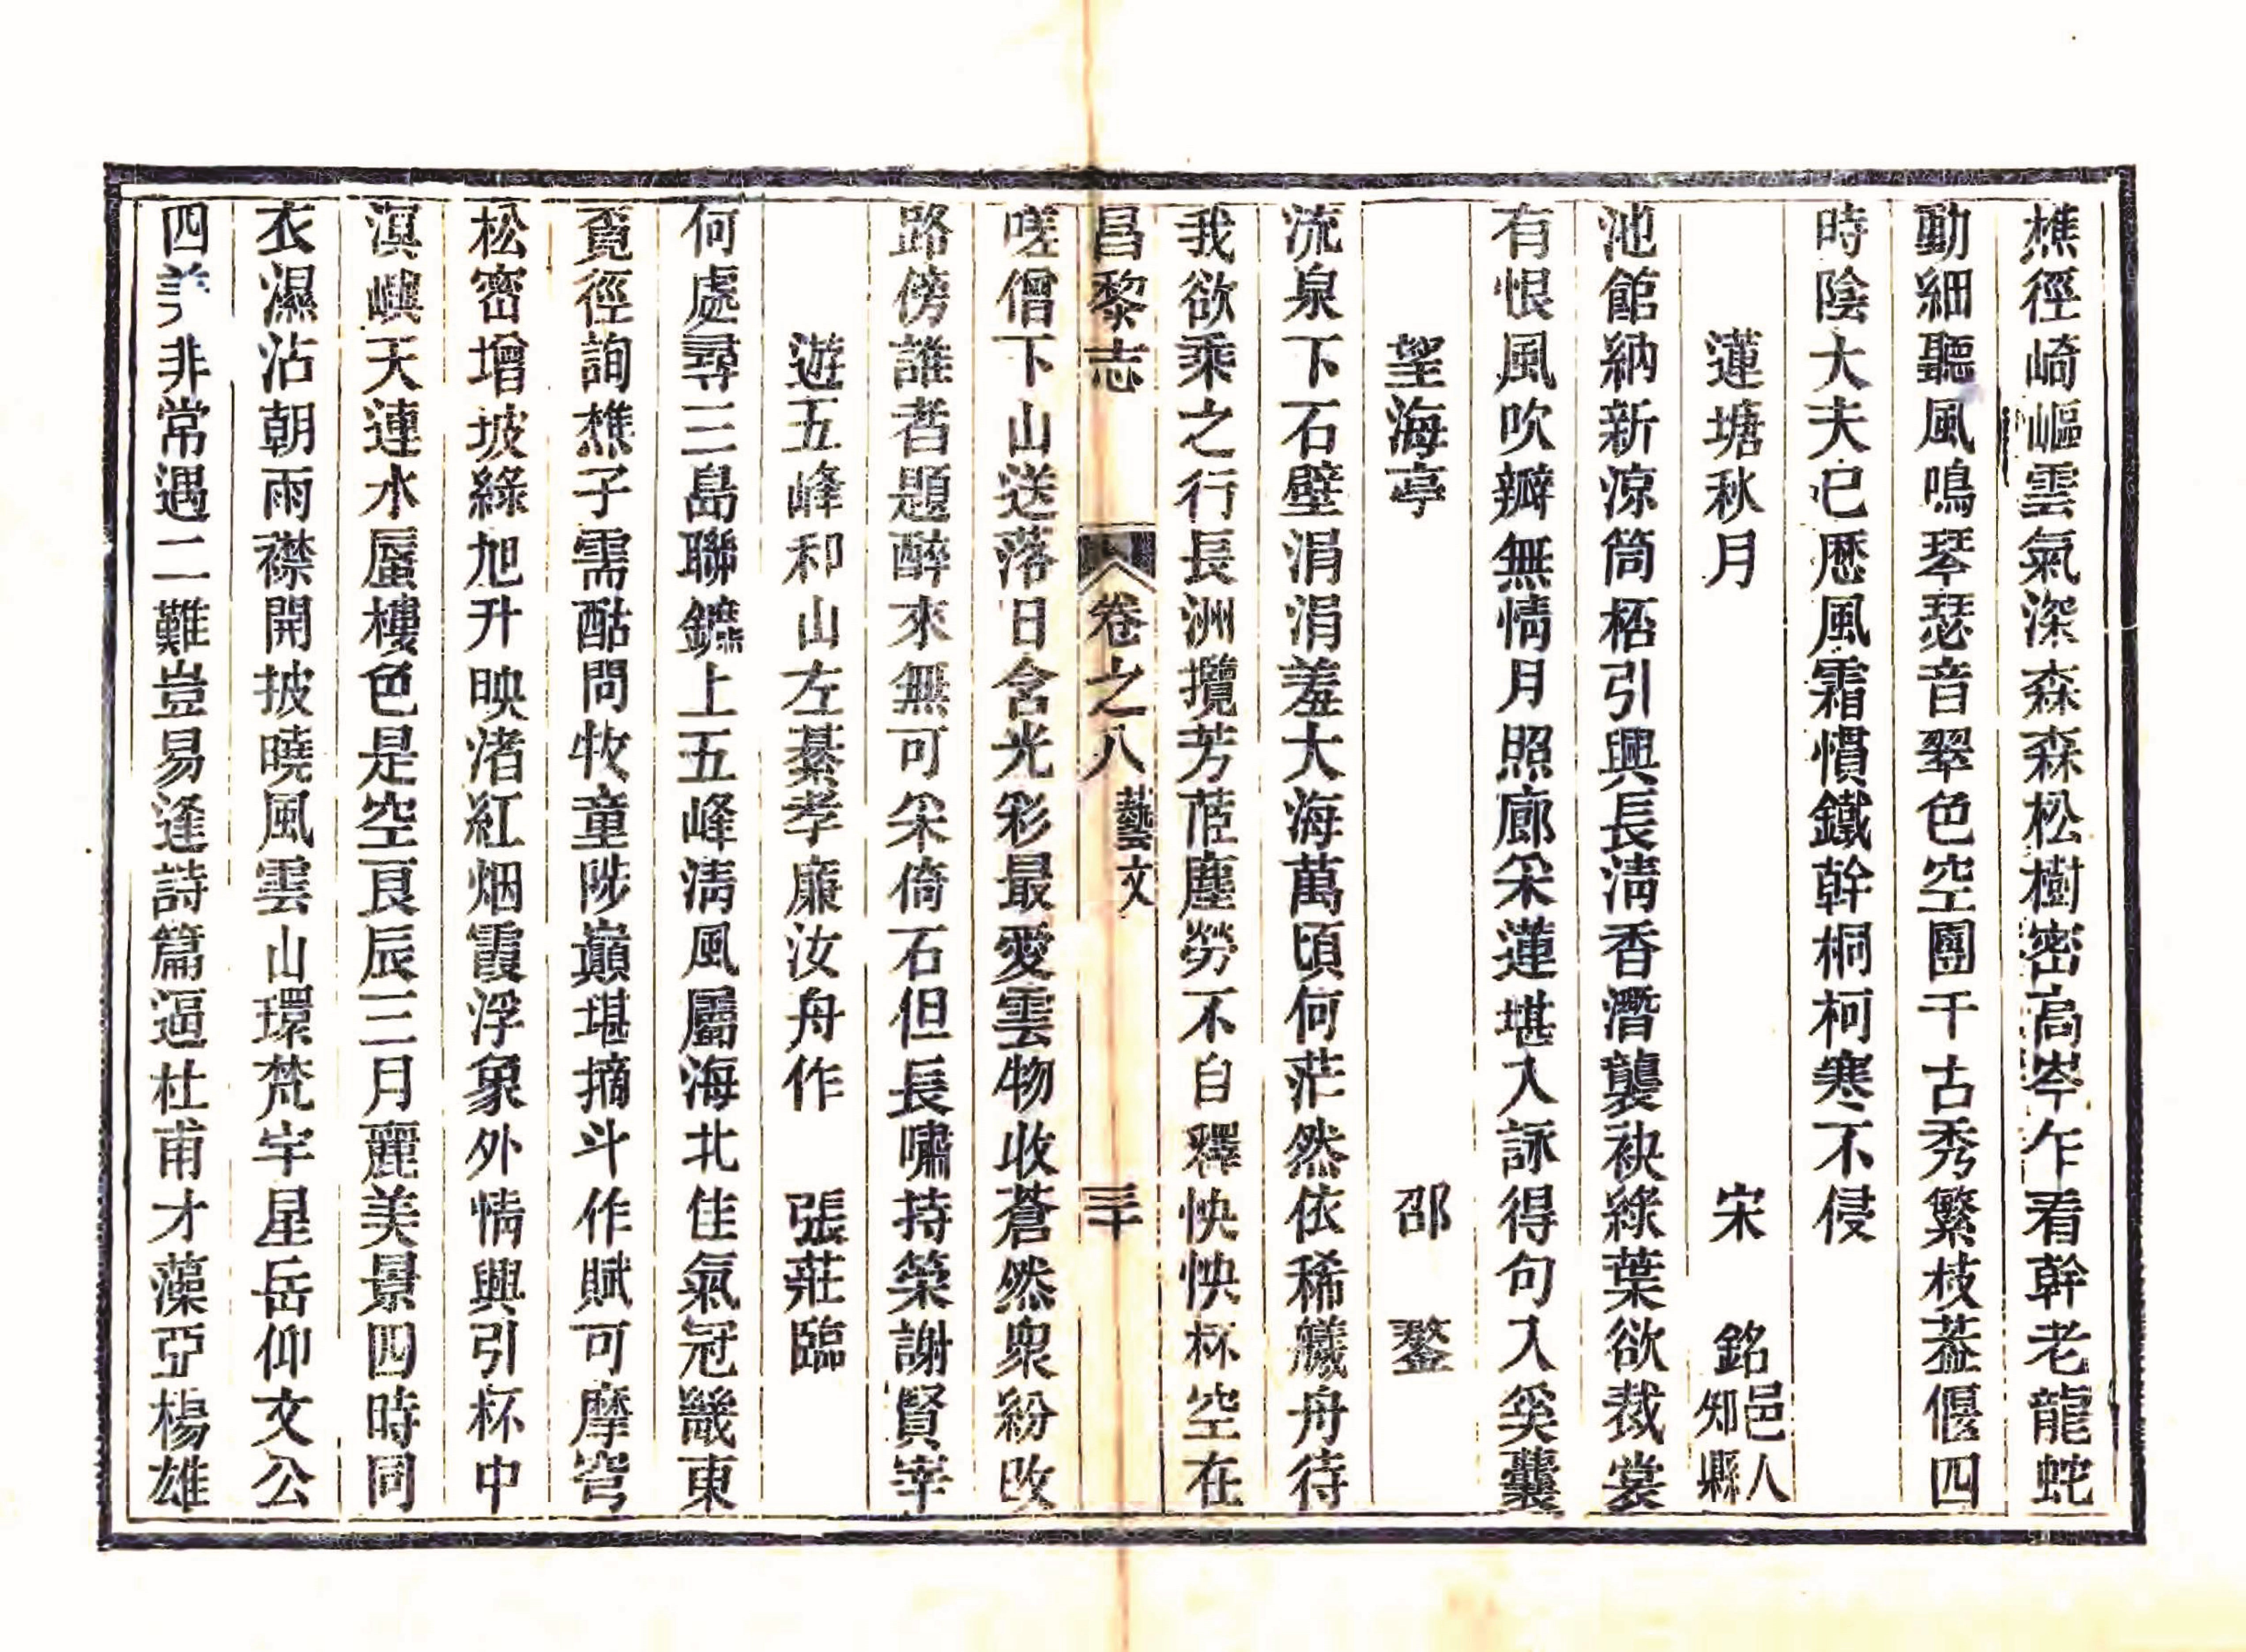 樵徑崎嶇雲氣深森森松樹密高岑乍看幹老龍蛇
動細聽風鳴琴瑟音翠色空團千古秀繁枝葢偃四
時陰大夫已歷風霜慣鐵幹桐柯寒不侵
蓮塘秋月　宋　銘邑人知縣
池館納新涼筒桮引興長淸香潛襲袂綠葉欲裁裳
有恨風吹瓣無情月照廊采蓮堪入詠得句入奚囊
望海亭　邵　鍳
流泉下石壁涓涓羞大海萬頃何茫然依稀艤舟待
我欲乘之行長洲攬芳茝塵勞不自釋怏怏杯空在
昌黎志　卷之八　藝文　三十
嗟僧下山送落日含光彩最愛雲物收蒼然衆紛改
路傍誰者題醉來無可采倚石但長嘯持榮謝賢宰
遊五峰和山左綦孝廉汝舟作　張莊臨
何處尋三島聯鑣上五峰淸風屬海北佳氣冠畿東
覔徑詢樵子需酤問牧童陟巔堪摘斗作賦可摩穹
松密增坡綠旭升映渚紅烟霞浮象外情興引杯中
溟嶼天連水蜃樓色是空良辰三月麗美景四時同
衣濕沾朝雨襟開披曉風雲山環梵宇星岳仰文公
四美非常遇二難豈易逢詩篇逼杜甫才藻亞楊雄